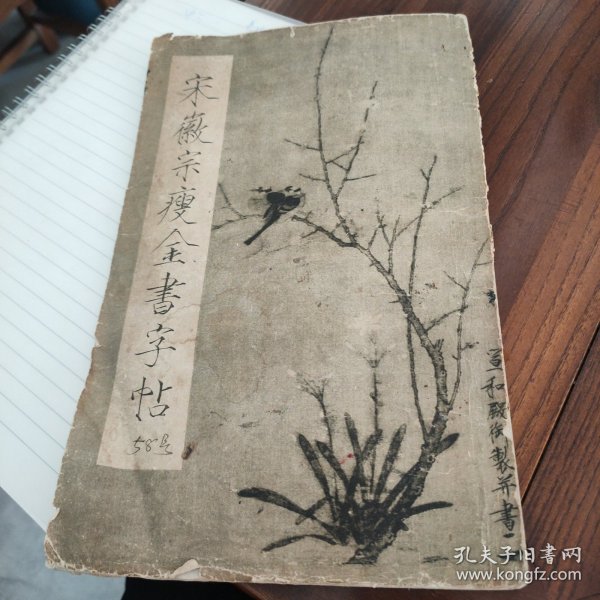 宋徽宗瘦金書字帖
58号
宣和殿御製并書
孔夫子旧书网
www.kongfz.com